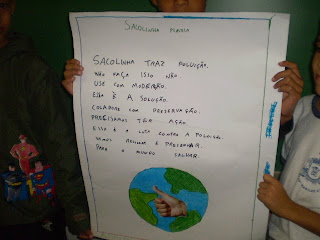 SACOLINHA PLASTICA
SACOLINHA TRAZ POLUIÇÃO.
NÃO FAÇA ISSO NÃO
USE COM MODERAÇÃO.
ESSA É A SOLUÇÃO.
COLABORE COM PRESERVAÇÃO.
PRECISAMOS TER AÇÃO.
ESSA É A LUTA CONTRA A POLUIÇÃO.
VAMOS AJUDAR E PRESERVAR.
PARA O MUNDO SALVAR